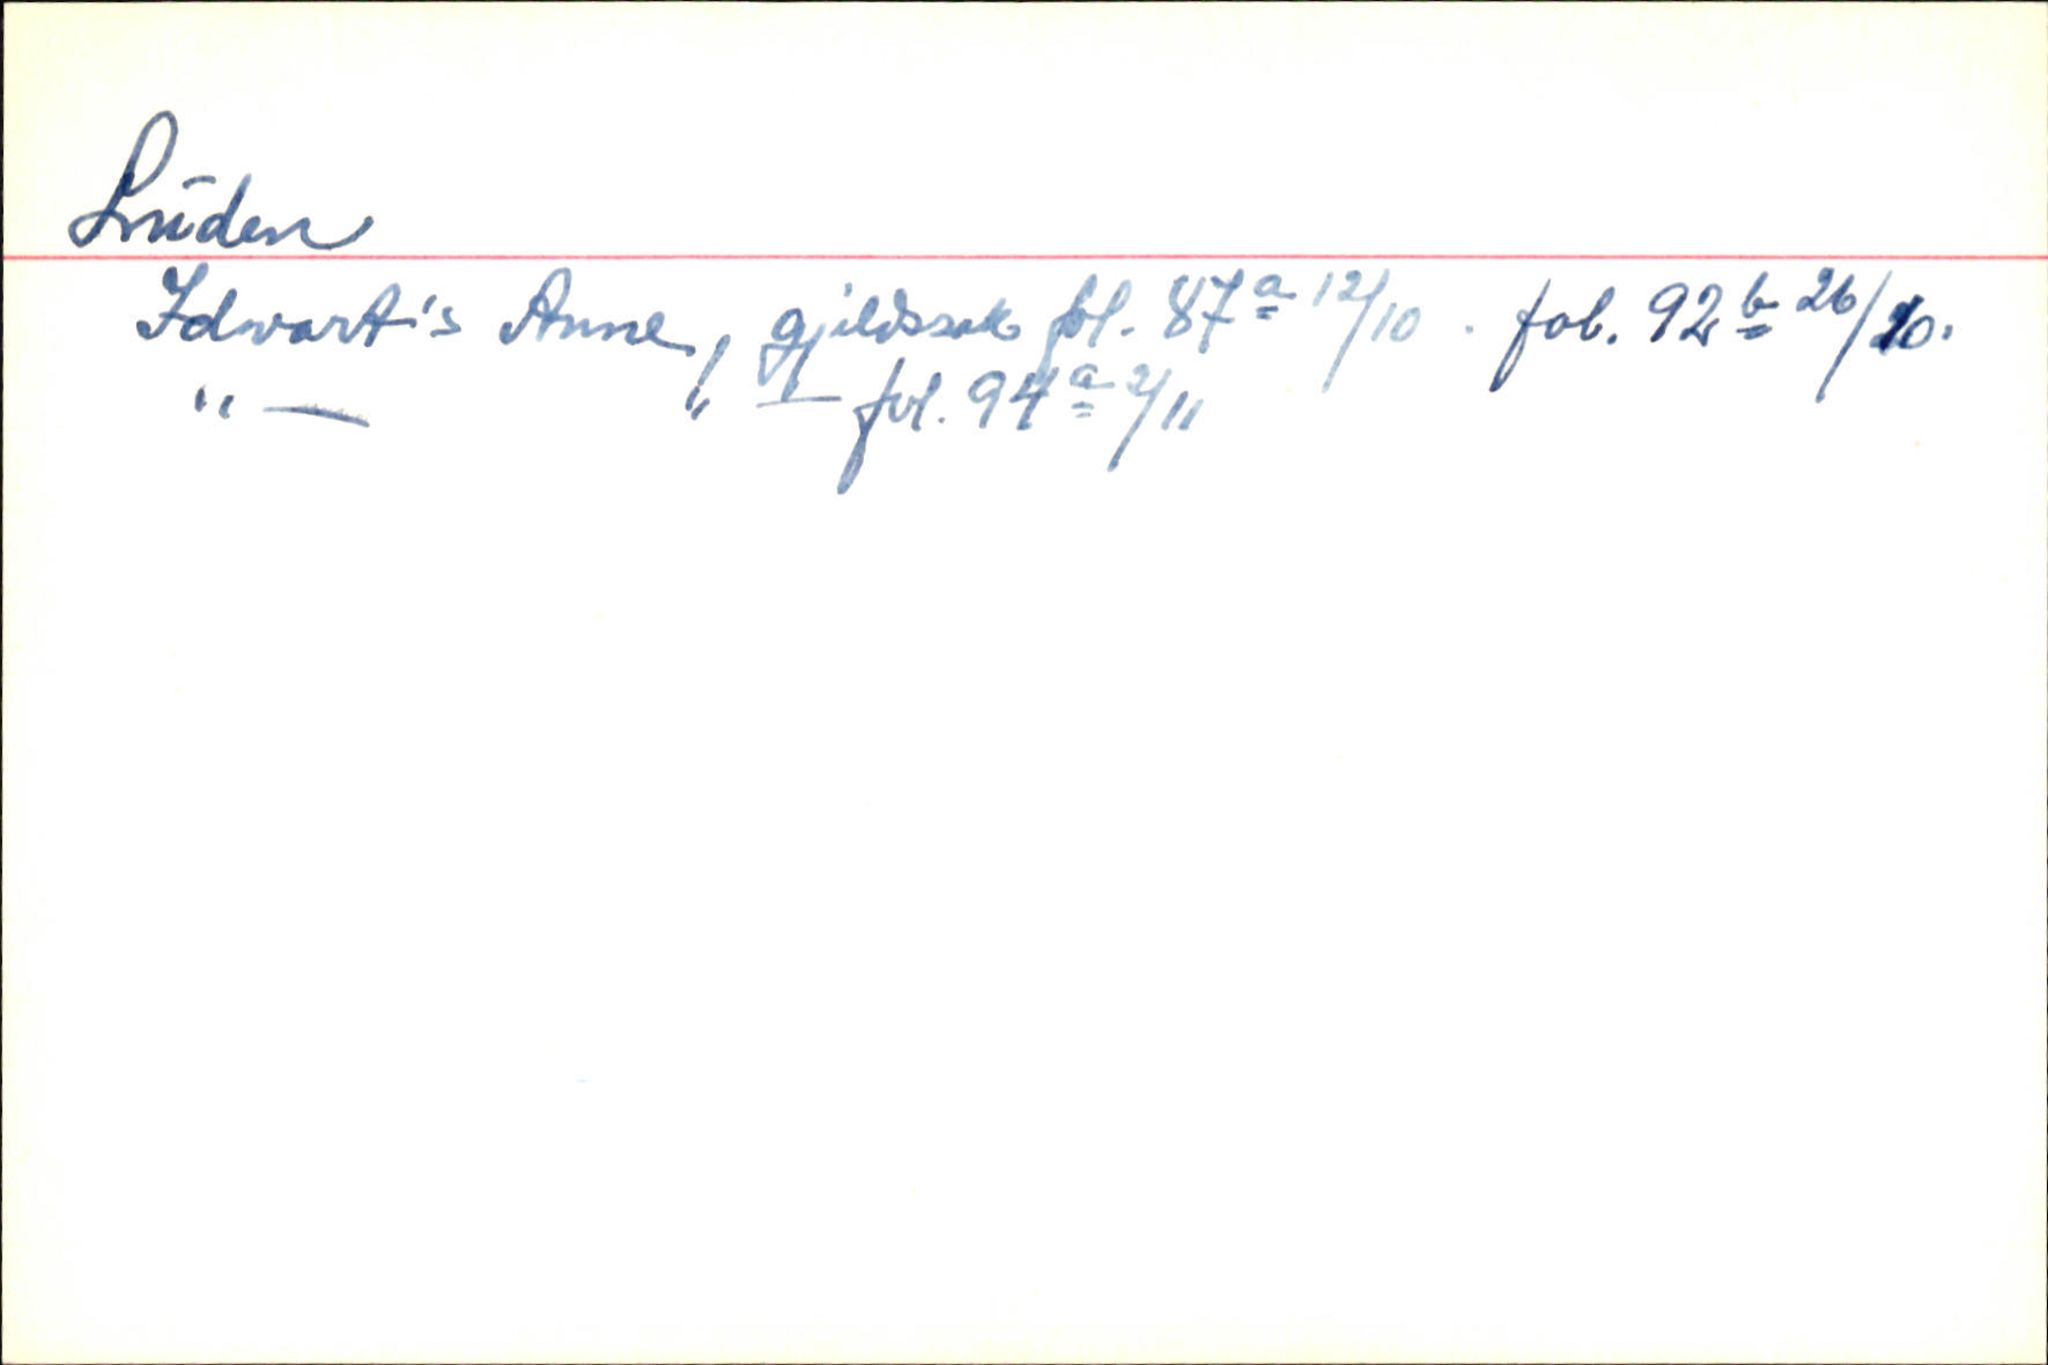 Lüden
Idwart's Anne, gjeldssak fol. 87a 12/10 . fol. 92b 26/10.
" — " — fol. 94a 2/11